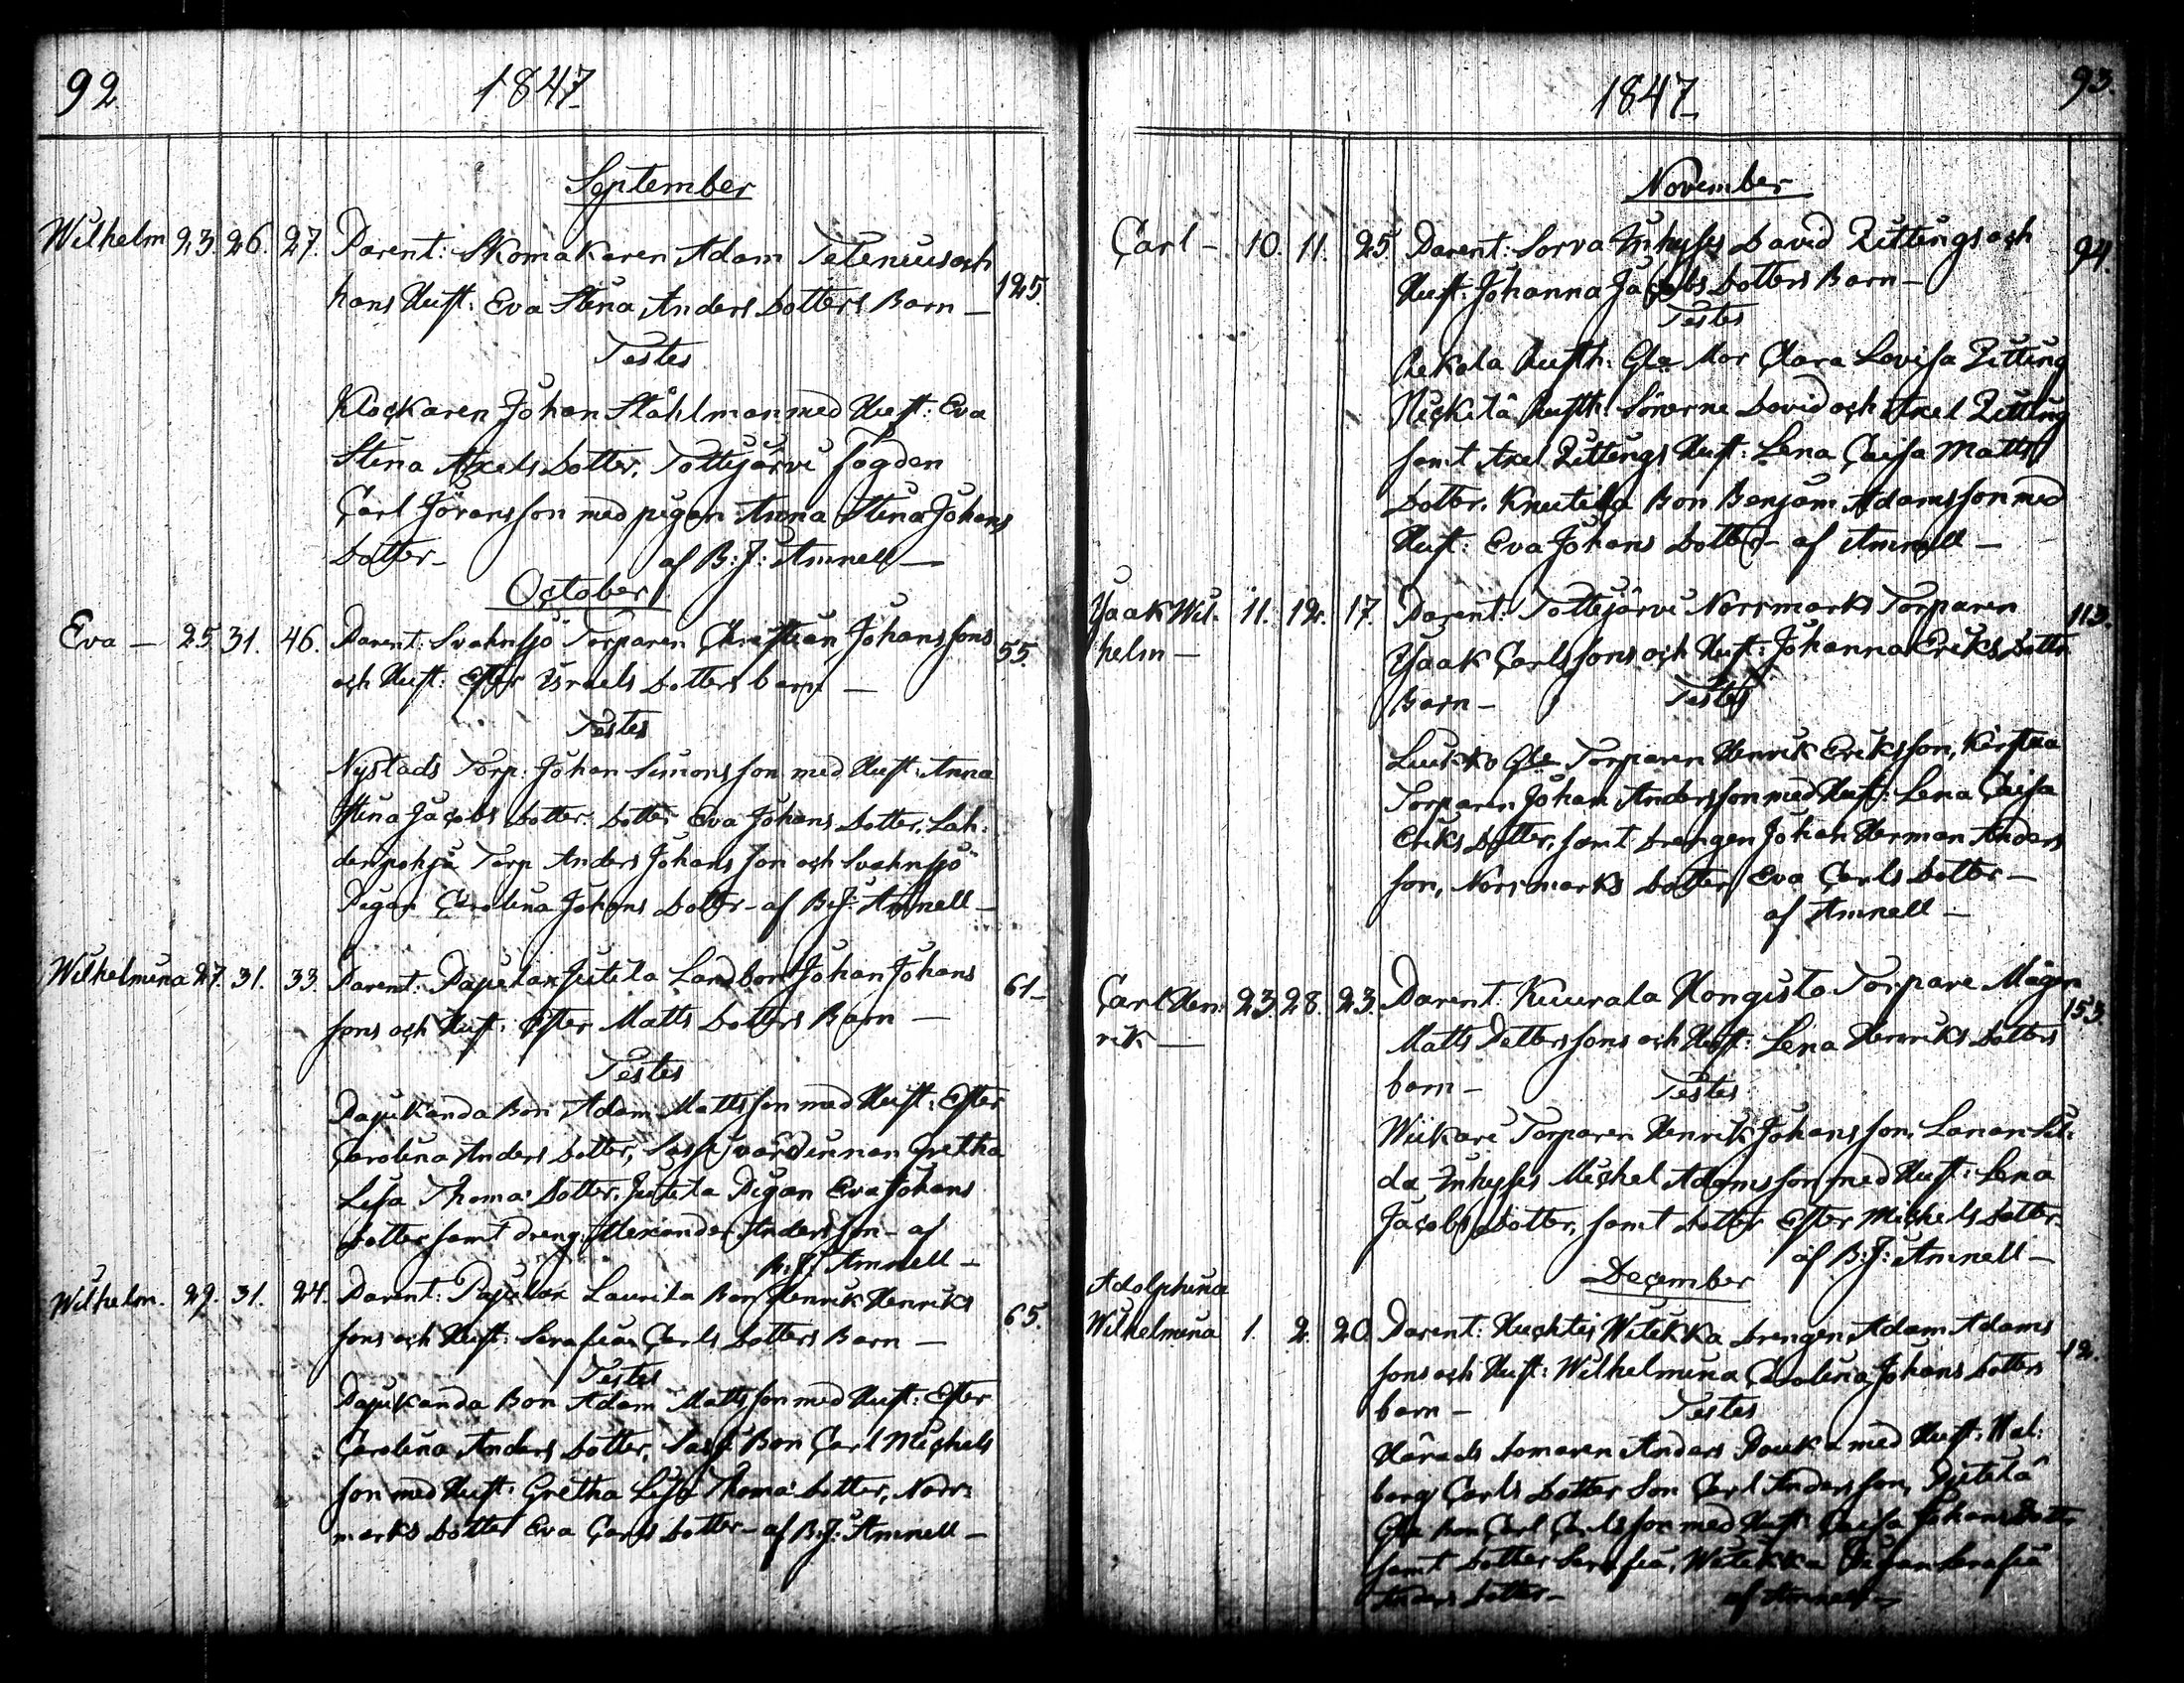 92
1847
September
Wilhelm 23. 26. 27. Parent: Skomakaren Adam Teleniusoch
hans Hust: Eva Stina Anders Dotters Barn — 125.
Testes
Klockaren Johan Ståhlman med Hust: Eva
Stina Axels Dotter, Tottijärvi fogden
Carl Göransson med pigan Anna Stina Johans
Dotter — af B: J: Amnell —
October
Eva — 25 31. 46. Parent: Svahnsjö Torparen Christian Johanssons 55.
och Hust: Ester Israels Dotters barn —
Testes
Nystads Torp: Johan Simonsson med Hust: Anna
Stina Jacobs Dotter. Dotter Eva Johans Dotter, Lah:
denpohja Torp Anders Johansson och Svahnsjö
Pigan Carolina Johans Dotter — af B:J: Amnell —
Wilhelmina 27. 31. 33. Parent: Landbon Johan Johans 61 —
sons och Hust: Ester Matts Dotters Barn —
Testes
Pajukanda Bon Adam Mattsson med Hust: Ester
Carolina Anders Dotter, Sassi värdinnan Gretha
Lisa Thomæ Dotter, Jutila Pigan Eva Johans
Dotter samt dreng Alexander Andersson — af
B: J: Amnell —
Wilhelm. 29. 31. 24. Parent: Laurila Bon Henrik Henriks 65.
sons och Hust: Serafia Carls Dotters Barn —
Testes
Pajukanda Bon Adam Mattsson med Hust: Ester
Carolina Anders Dotter, Sassi Bon Carl Michels
son med Hust: Gretha Lisa Thomæ Dotter, Norr:
marks Dotter Eva Carls Dotter — af B:J: Amnell —
93.
1847
November
Carl — 10. 11. 25. Parent: Sorva Inhyses David Zittings och 94.
Hust: Johanna Jacobs Dotters Barn —
Testes
Rekola Rusth: Gla Mor Clara Lovisa Zitting
Nickilä Rusth: Sönerne David och Axel Zitting
samt Axel Zittings Hust: Lena Caisa Matts
Dotter. Knuutila Bon Benjam Adamsson med
Hust: Eva Johans Dotter — af Amnell —
Isaak Wil- 11. 12. 17. Parent: Tottijärvi Norrmarks Torparen 113.
helm — Isaak Carlssons och Hust: Johanna Eriks Dotters
Barn — Testes
Luukko Gla Torparen Henrik Eriksson,
Torparen Johan Andersson med Hust: Lena Caisa
Eriks Dotter, samt Drengen Johan Herman Anders
son, Norrmarks Dotter Eva Carls Dotter —
af Amnell —
Carl Hen: 23. 28. 23. Parent: Kuurala Hongisto Torpare Mågen 153.
rik — Matts Petterssons och Hust: Lena Henriks Dotters
barn — Testes
Wiikari Torparen Henrik Johansson, Lanan Sil:
da Inhyses Michel Adamsson med Hust: Lena
Jacobs Dotter, samt Dotter Ester Michels Dotter.
af B: J: Amnell —
December
Adolphina
Wilhelmina 1. 2. 20. Parent: Huchtis Witikka Drengen Adam Adams 12.
sons och Hust: Wilhelmina Carolina Johans Dotters
barn — Testes
Härads Domaren Anders Pouka med Hust: Wal:
borg Carls Dotter Son Carl Andersson,
Gla Bon Carl Carlsson med Hust: Caisa Johans Dotter
samt Dotter Serafia, Witikka Pigan Serafia
Anders Dotter — af Amnell —